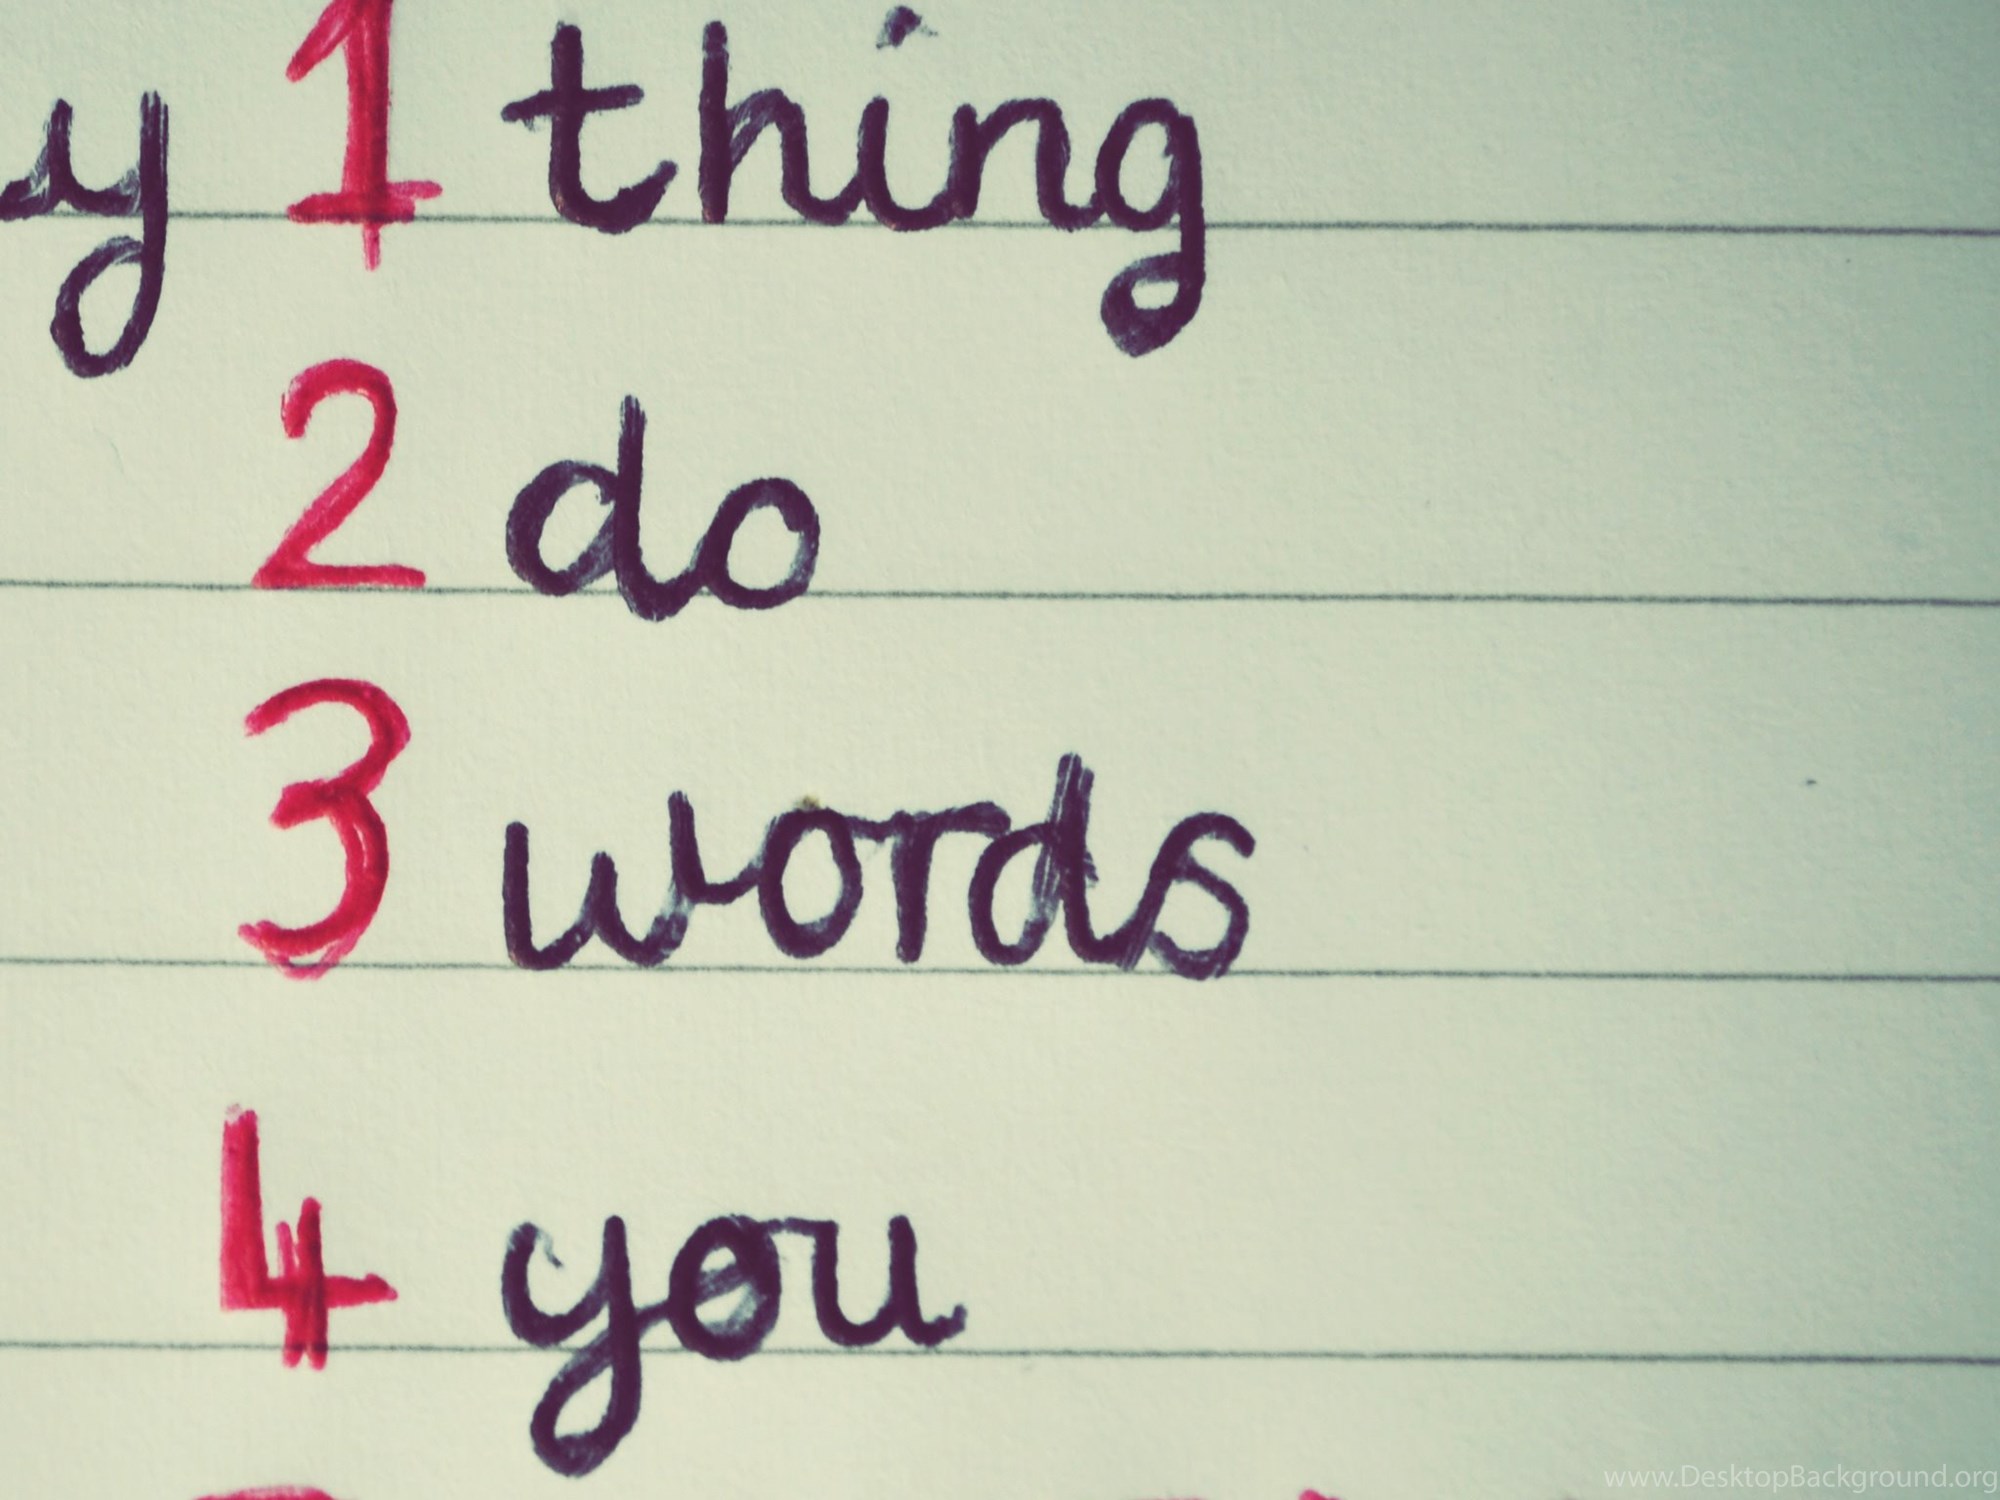 y 1 thing
2 do
3 words
4 you
www.DesktopBackground.org